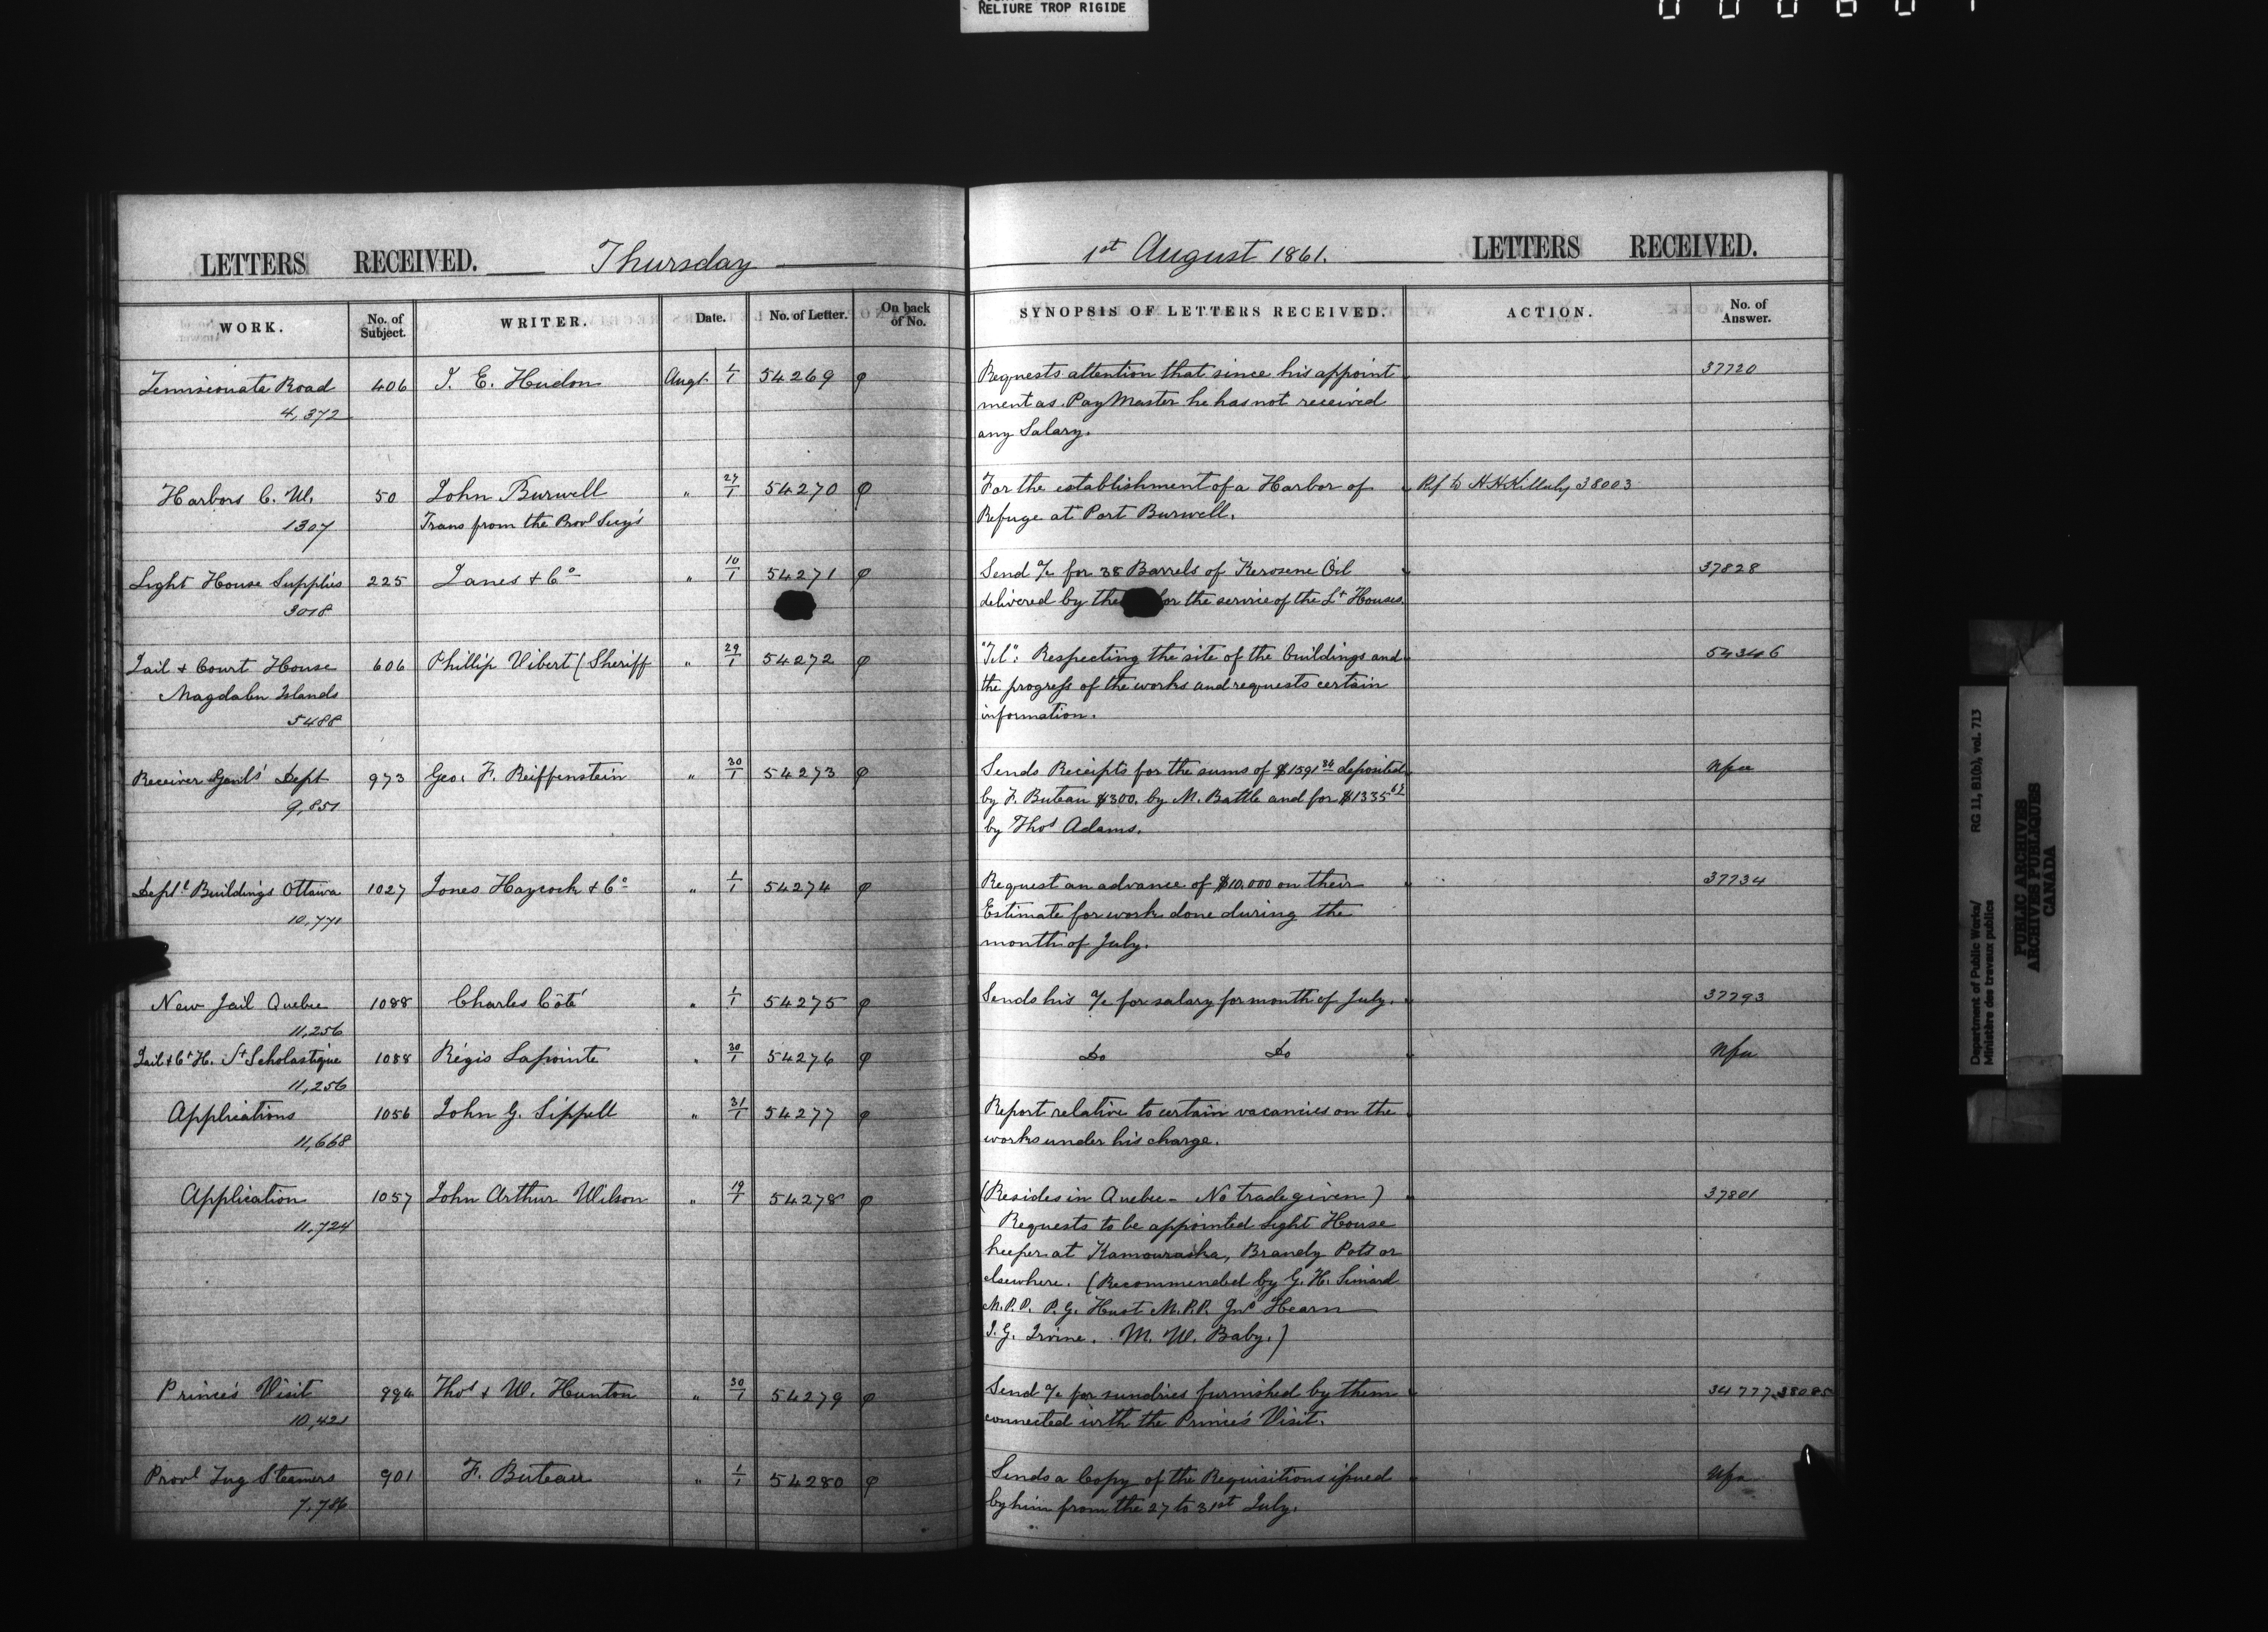 RELIURE TROP RIGIDE
LETTERS RECEIVED. Thursday
1st August 1861. LETTERS RECEIVED.
WORK. No. of Subject. WRITER. Date. No. of Letter. On back of No.
SYNOPSIS OF LETTERS RECEIVED. ACTION. No. of Answer.
Temiscouata Road 406 J. E. Hudon Augt 54269 φ
4,372
Requests attention that since his appoint 37720
ment as Pay Master he has not received
any Salary.
Harbors C. W. 50 John Burwell " 27/1 54270 φ
1307 Trans from the Provl Secy's
For the establishment of a Harbor of Ref to H H Killaly 38003
Refuge at Port Burwell.
Light House Supplies 225 Lanes & Co " 10/1 54271 φ
3018
Send a/c for 38 Barrels of Kerosene Oil 37828
delivered by the for the service of the Lt Houses.
Jail & Court House 606 Phillip Vibert (Sheriff " 29/1 54272 φ
Magdaln Islands
5488
"Tel": Respecting the site of the buildings and 54346
the progress of the works and requests certain
information.
Receiver Genls' Dept 973 Geo. F. Reiffenstein " 30/1 54273 φ
9,851
Sends Receipts for the sums of $1591 84 deposited Nfa
by F. Buteau $300. by M. Battle and for $1335
by Thos Adams.
Deptl Buildings Ottawa 1027 Jones Haycock & Co " 1/1 54274 φ
10,771
Request an advance of $10,000 on their 37734
Estimate for work done during the
month of July.
New Jail Quebec 1088 Charles Côté " 1/1 54275 φ
11,256
Sends his a/c for salary for month of July. 37793
Jail & Ct H. St Scholastique 1088 Régis Lapointe " 30/1 54276 φ
11,256
Do Do Nfa
Applications 1056 John G. Sippell " 31/1 54277 φ
11,668
Report relative to certain vacancies on the
works under his charge.
Application 1057 John Arthur Wilson " 19/1 54278 φ
11,724
(Resides in Quebec - No trade given) 37801
Requests to be appointed Light House
keeper at Kamouraska, Brandy Pots or
elsewhere. (Recommended by G. H. Simard
M.P.P. P. G. Huot M.P.P. Jno Hearn
J. G. Irvine. M. W. Baby.)
Prince's Visit 994 Thos & W. Hunton " 30/1 54279 φ
10,421
Send a/c for sundries furnished by them 34777, 38085
connected with the Prince's Visit.
Provl Tug Steamers 901 F. Buteau " 1/1 54280 φ
7,786
Sends a Copy of the Requisitions issued Nfa
by him from the 27 to 31st July.
Department of Public Works/ RG 11, B1(b), vol. 713
Ministère des travaux publics
PUBLIC ARCHIVES
ARCHIVES PUBLIQUES
CANADA